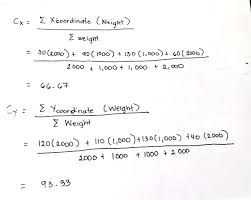 Cx = Σ Xcoordinate (Weight)
Σ weight
= 30(2000) + 90(1000) + 130(1,000) + 60(2000)
2000 + 1,000 + 1,000 + 2,000
= 66.67
Cy = Σ Ycoordinate (Weight)
Σ Weight
= 120(2000) + 110(1,000) + 130(1,000) + 40(2000)
2000 + 1000 + 1000 + 2000
= 93.33